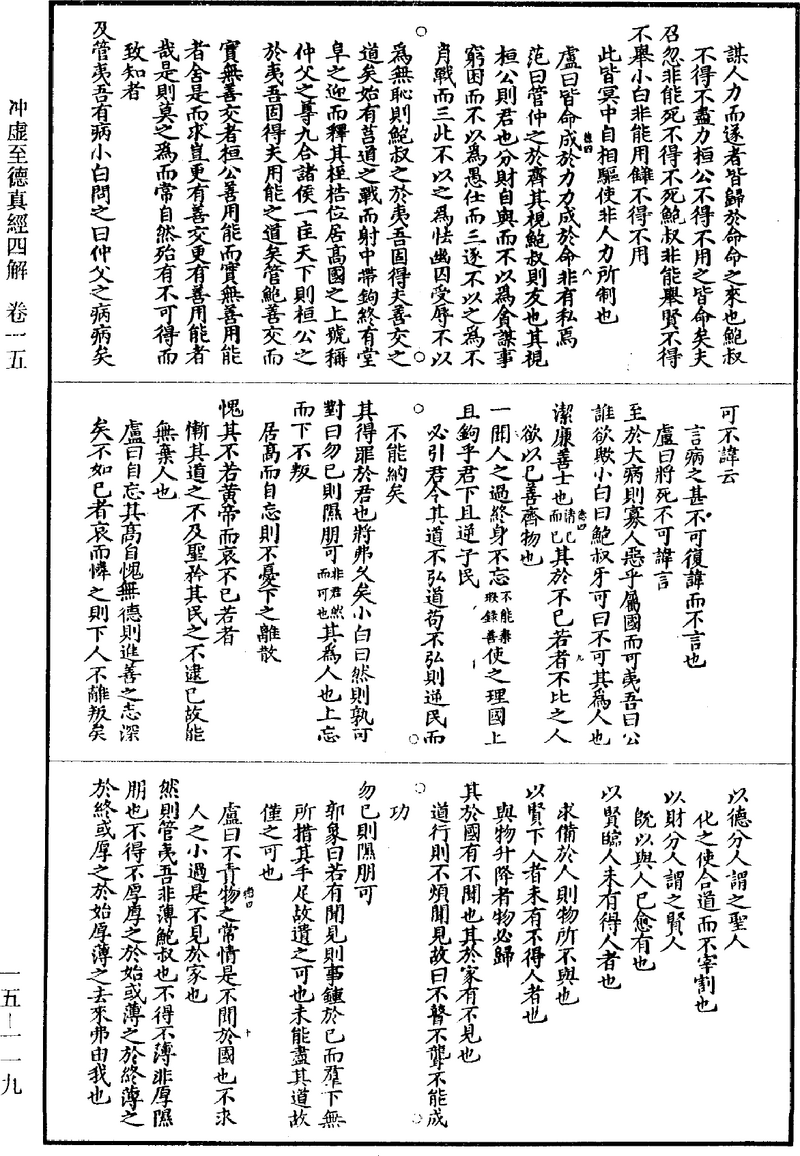 冲虛至德真經四解 卷一五
一五—一一九
謀人力而遂者皆歸於命命之來也鮑叔
不得不盡力桓公不得不用之皆命矣夫
召忽非能死不得不死鮑叔非能舉賢不得
不舉小白非能用讎不得不用
此皆冥中自相驅使非人力所制也
盧曰皆命成於力力成於命非有私焉
范曰管仲之於齊其視鮑叔則友也其視
桓公則君也分財自與而不以為貪謀事
窮困而不以為愚仕而三逐不以之為不
肖戰而三北不以之為怯幽囚受辱不以
為無恥則鮑叔之於夷吾固得夫善交之
道矣始有莒道之戰而射中帶鉤終有堂
阜之迎而釋其桎梏位居高國之上號稱
仲父之尊九合諸侯一匡天下則桓公之
於夷吾固得夫用能之道矣管鮑善交而
實無善交者桓公善用能而實無善用能
者舍是而求豈更有善交更有善用能者
哉是則莫之為而常自然殆有不可得而
致知者
及管夷吾有病小白問之曰仲父之病病矣
可不諱云
言病之甚不可復諱而不言也
盧曰將死不可諱言
至於大病則寡人惡乎屬國而可夷吾曰公
誰欲歟小白曰鮑叔牙可曰不可其為人也
潔廉善士也清己而已其於不己若者不比之人
欲以己善齊物也
一聞人之過終身不忘不能棄瑕錄善使之理國上
且鉤乎君下且逆乎民
必引君令其道不弘道苟不弘則逆民而
不能納矣
其得罪於君也將弗久矣小白曰然則孰可
對曰勿已則隰朋可非君然而可也其為人也上忘
而下不叛
居高而自忘則不憂下之離散
愧其不若黃帝而哀不己若者
慚其道之不及聖矜其民之不逮己故能
無棄人也
盧曰自忘其高自愧無德則進善之志深
矣不如己者哀而憐之則下人不離叛矣
以德分人謂之聖人
化之使合道而不宰割也
以財分人謂之賢人
既以與人己愈有也
以賢臨人未有得人者也
求備於人則物所不與也
以賢下人者未有不得人者也
與物升降者物必歸
其於國有不聞也其於家有不見也
道行則不煩聞見故曰不瞽不聾不能成
功
勿已則隰朋可
郭象曰若有聞見則事鍾於己而羣下無
所措其手足故遺之可也未能盡其道故
僅之可也
盧曰不責物之常情是不聞於國也不求
人之小過是不見於家也
然則管夷吾非薄鮑叔也不得不薄非厚隰
朋也不得不厚厚之於始或薄之於終薄之
於終或厚之於始厚薄之去來弗由我也